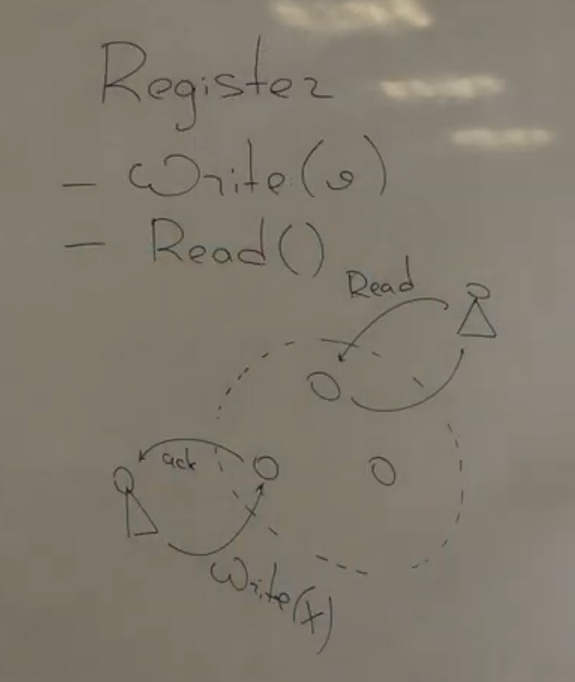 Register
- Write(v)
- Read()
Read
ack
Write(x)